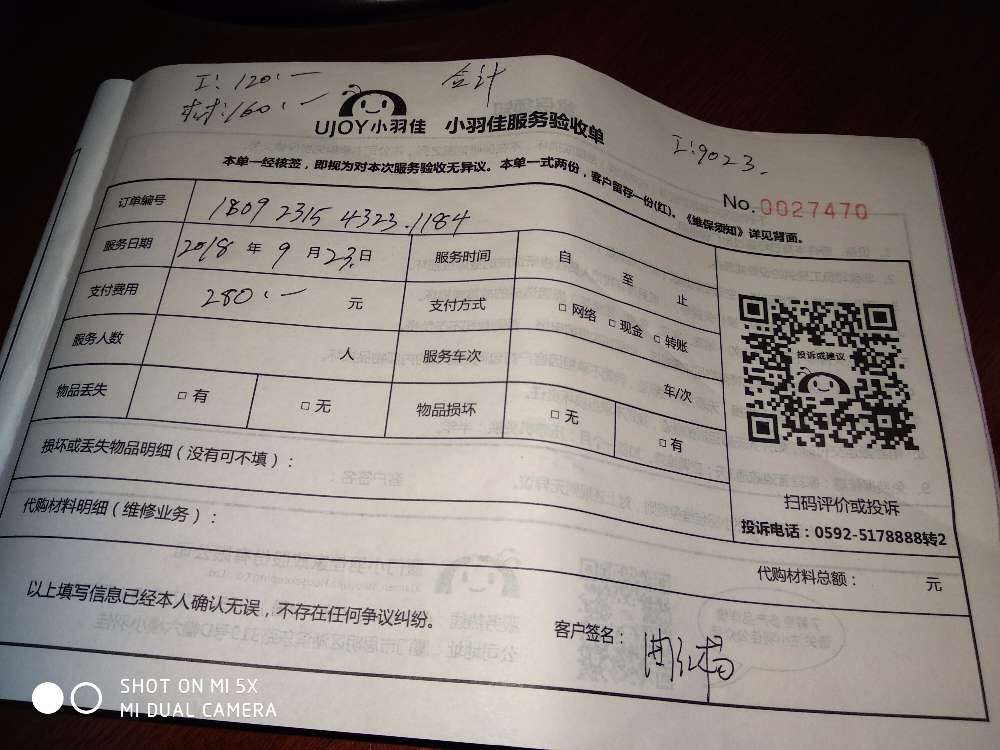 工:120.一
材:160.一
合计
UJOY小羽佳 小羽佳服务验收单
工:9023.
本单一经核签，即视为对本次服务验收无异议。本单一式两份，客户留存一份(红)。《维保须知》详见背面。
No.0027470
订单编号 1809 2315 4323.1184
服务日期 2018 年 9 月 23.日 服务时间 自 至 止
支付费用 280.一 元 支付方式 □ 网络 □ 现金 □ 转账
服务人数 人 服务车次 车/次
物品丢失 □ 有 □ 无 物品损坏 □ 无 □ 有
投诉或建议
扫码评价或投诉
投诉电话：0592-5178888转2
损坏或丢失物品明细（没有可不填）：
代购材料明细（维修业务）：
代购材料总额： 元
以上填写信息已经本人确认无误，不存在任何争议纠纷。
客户签名：
SHOT ON MI 5X
MI DUAL CAMERA